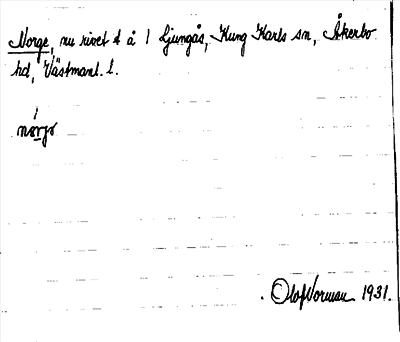 Norge, nu rivet t å 1 Ljungås, Kung Karls sn, Åkerbo
hd, Västmanl. l.
norjə
Olof Vorman 1931.